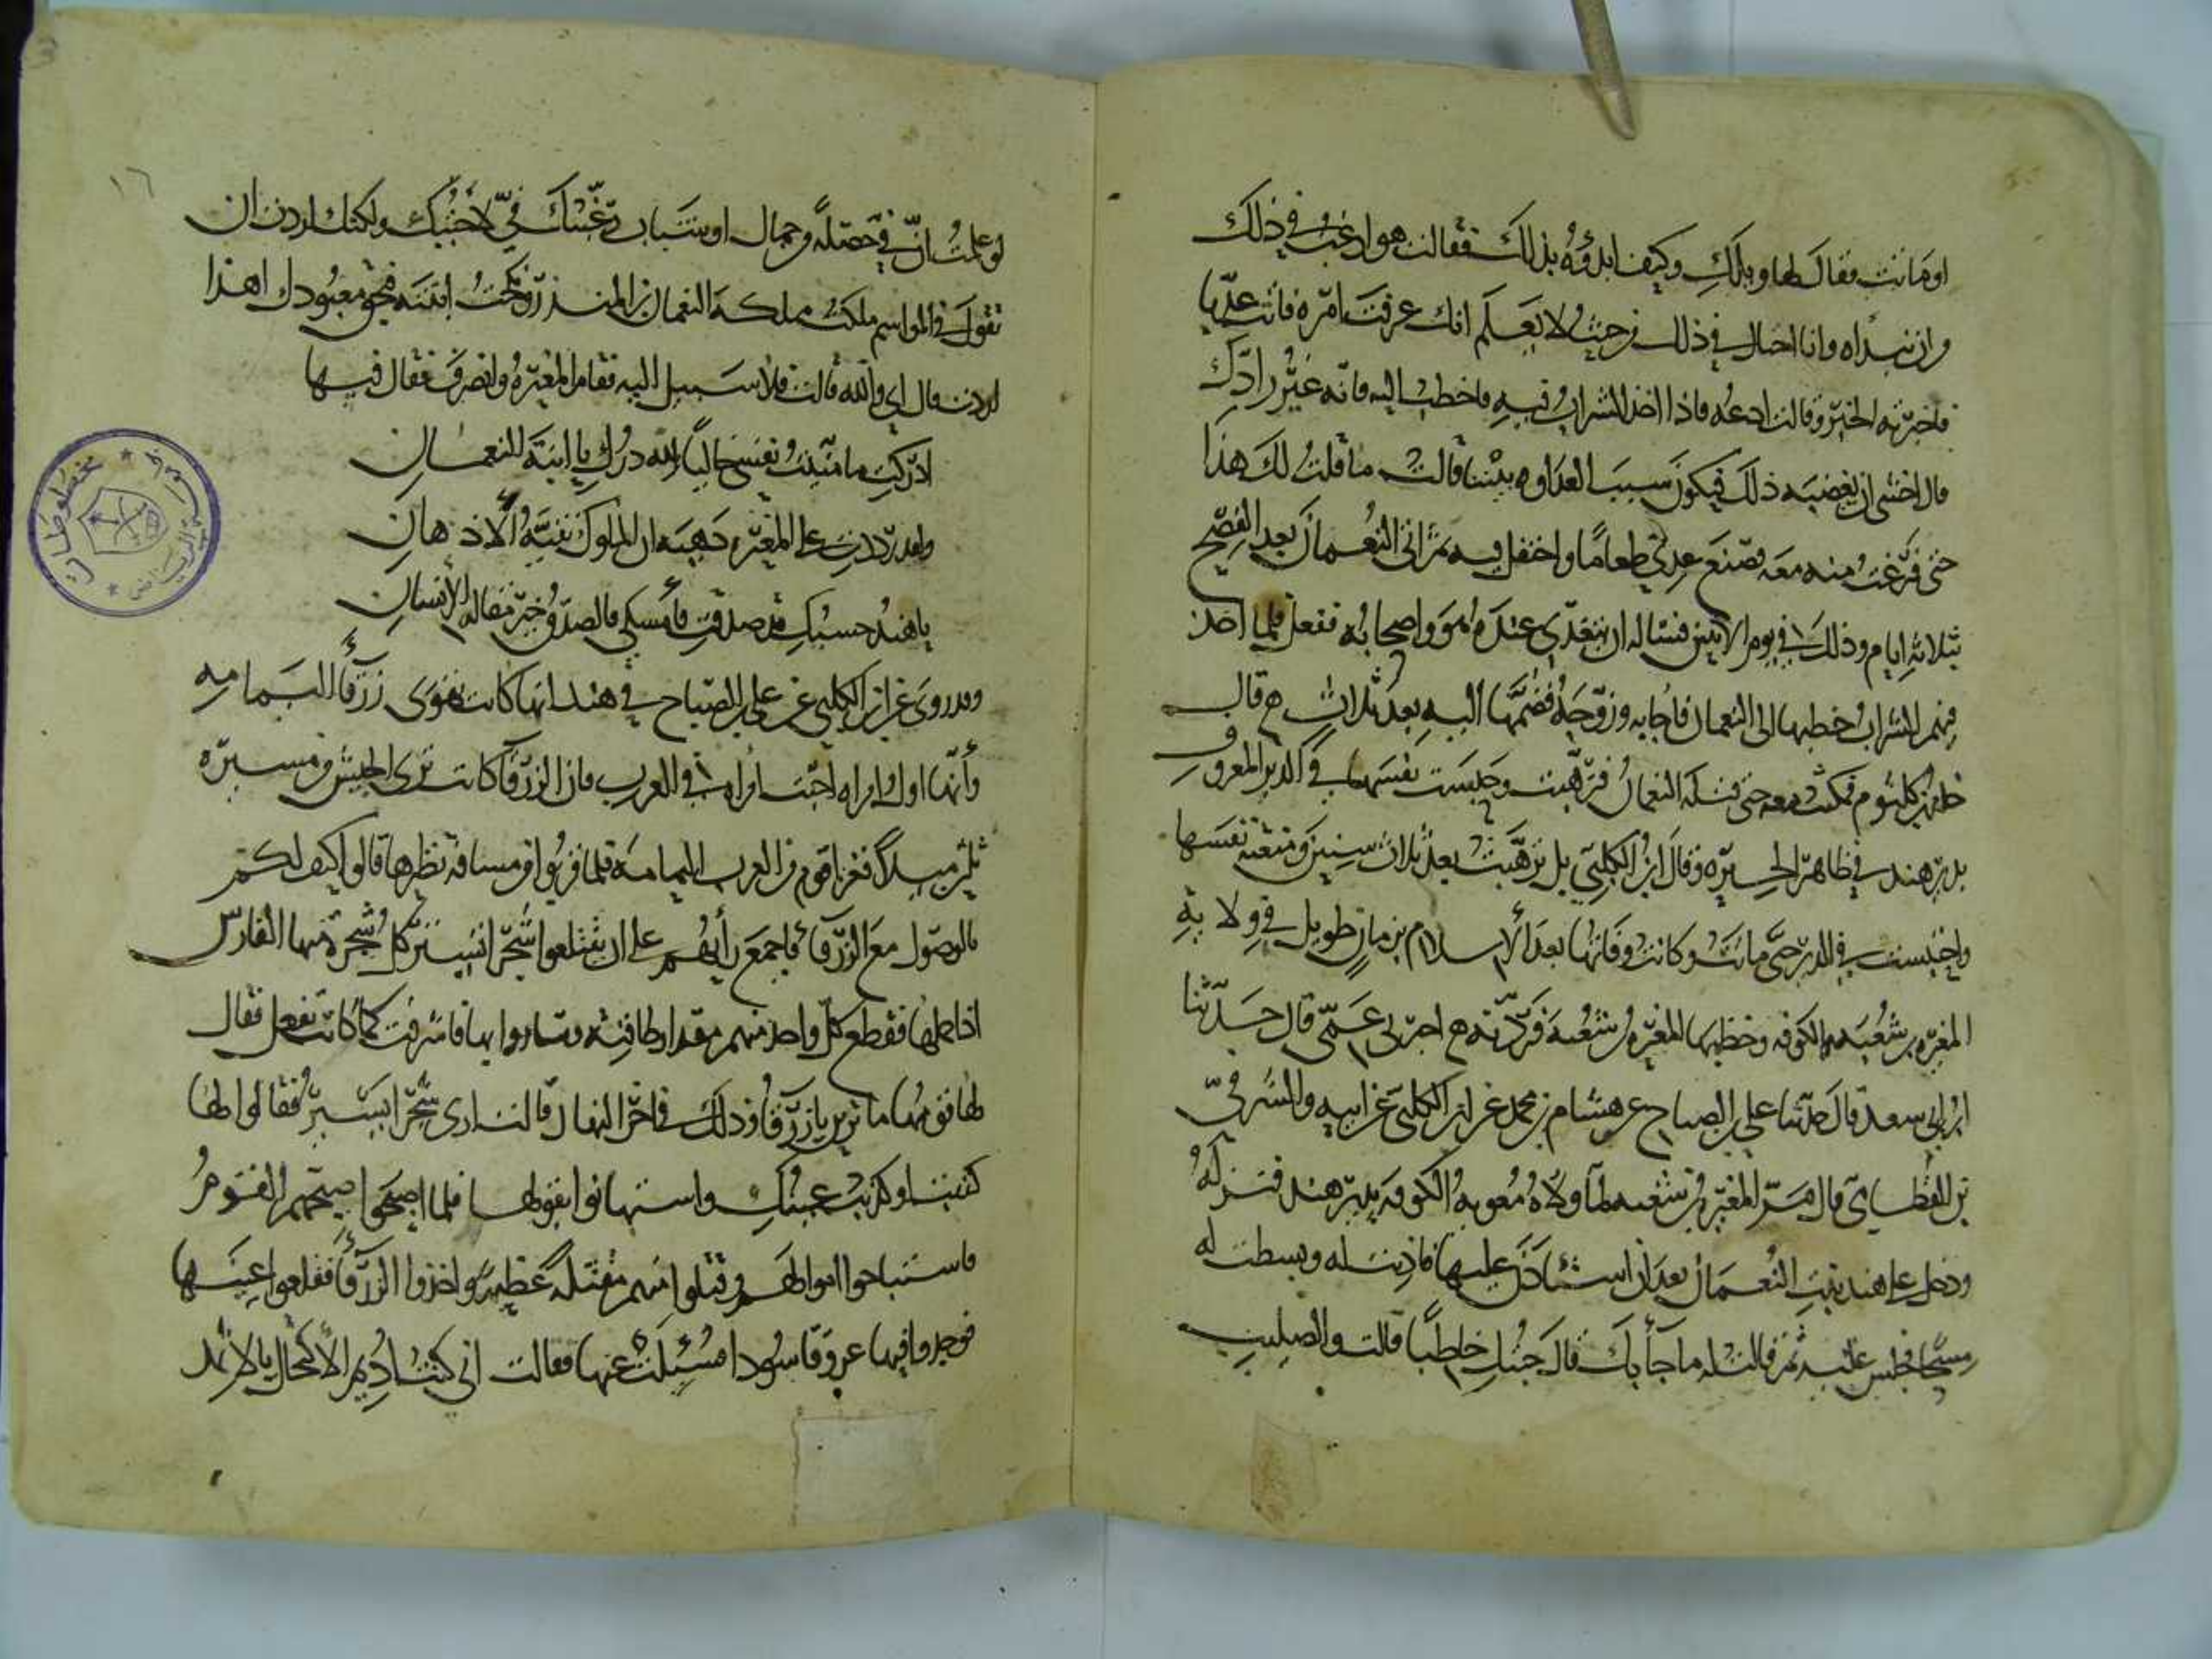 او ماتت فقال لها ويلك وكيف ابدؤه بذلك فقالت هو ارغب في ذلك
من ان تبداه وانا احتال في ذلك من حيث لا يعلم انك عرفت امره فاتت عديا
فاخبرته الخبر وقالت ادعه فاذا اخذ الشراب فيه فاخطب اليه فانه غير رادك
قال اخشى ان يغضبه ذلك فيكون سبب العداوه بيننا قالت ما قلت لك هذا
حتى فرغت منه معه فصنع عدي طعاما واحتفل فيه ثم اتى النعمان بعد الفصح
بثلاثة ايام وذلك في يوم الاثنين فساله ان يتغدى عنده هو واصحابه ففعل فلما اخذ
منهم الشراب خطبها الى النعمان فاجابه وزوجه فضمها اليه بعد ثلاث ح قال
خالد بن كلثوم فمكثت معه حتى قتله النعمان فترهبت وحبست نفسها في الدير المعروف
بدير هند في ظاهر الحيره وقال ابن الكلبي بل ترهبت بعد ثلاث سنين ومنعته نفسها
واحتبست في الدير حتى ماتت وكانت وفاتها بعد الاسلام بزمان طويل في ولاية
المغيره بن شعبه الكوفه وخطبها المغيره بن شعبة فردته ح اخبرني عمي قال حدثنا
ابن ابي سعد قال حدثنا علي بن الصباح عن هشام بن محمد عن ابن الكلبي عن ابيه والشرقي
بن القطامي قال مر المغيره بن شعبه لما ولاه معويه الكوفه بدير هند فنزله
ودخل على هند بنت النعمان بعد ان استاذن عليها فاذنت له وبسطت له
مسحا فجلس عليه ثم قالت له ما جأ بك قال جئتك خاطبا قالت والصليب
١٦
لو علمت ان في خصلة من جمال او شباب رغبتك في لاجبتك ولكنك اردت ان
تقول في المواسم ملكت مملكة النعمان بن المنذر ونكحت ابنته فبحق معبودك اهذا
اردت قال اي والله قالت فلا سبيل اليه فقام المغيره وانصرف فقال فيها
ادركت ما منيت نفسي خاليا لله درك يا ابنة النعمان
ولقد رددت على المغيره دهيه ان الملوك نقية الاذهان
يا هند حسبك قد صدقت فامسكي فالصدق خير مقالة الانسان
وقد روى عن ابن الكلبي عن علي بن الصباح في هند انها كانت تهوى زرقا اليمامه
وانها اول امراه احبت امراه في العرب فان الزرقا كانت ترى الجيش من مسيره
ثلثين ميلا فغزا قوم من العرب اليمامه فلما قربوا من مسافة نظرها قالوا كيف لكم
بالوصول مع الزرقأ فاجمع رأيهم على ان يقتلعوا شجرا تستر كل شجرة منها الفارس
اذا حملها فقطع كل واحد منهم مقدار طاقته وساروا بها فاشرفت كما كانت تفعل فقال
لها قومها ما ترين يا زرقا وذلك في اخر النهار قالت ارى شجرا يسير فقالوا لها
كذبت او كذبت عينك واستهانوا بقولها فلما اصبحوا صبحهم القوم
فاستباحوا اموالهم وقتلوا منهم مقتلة عظيمه واخذوا الزرقأ فقلعوا اعينها
فوجدوا فيها عروقا سودا فسئلت عنها فقالت اني كنت اديم الاكتحال بالاثمد
مخطوطات
الرياض